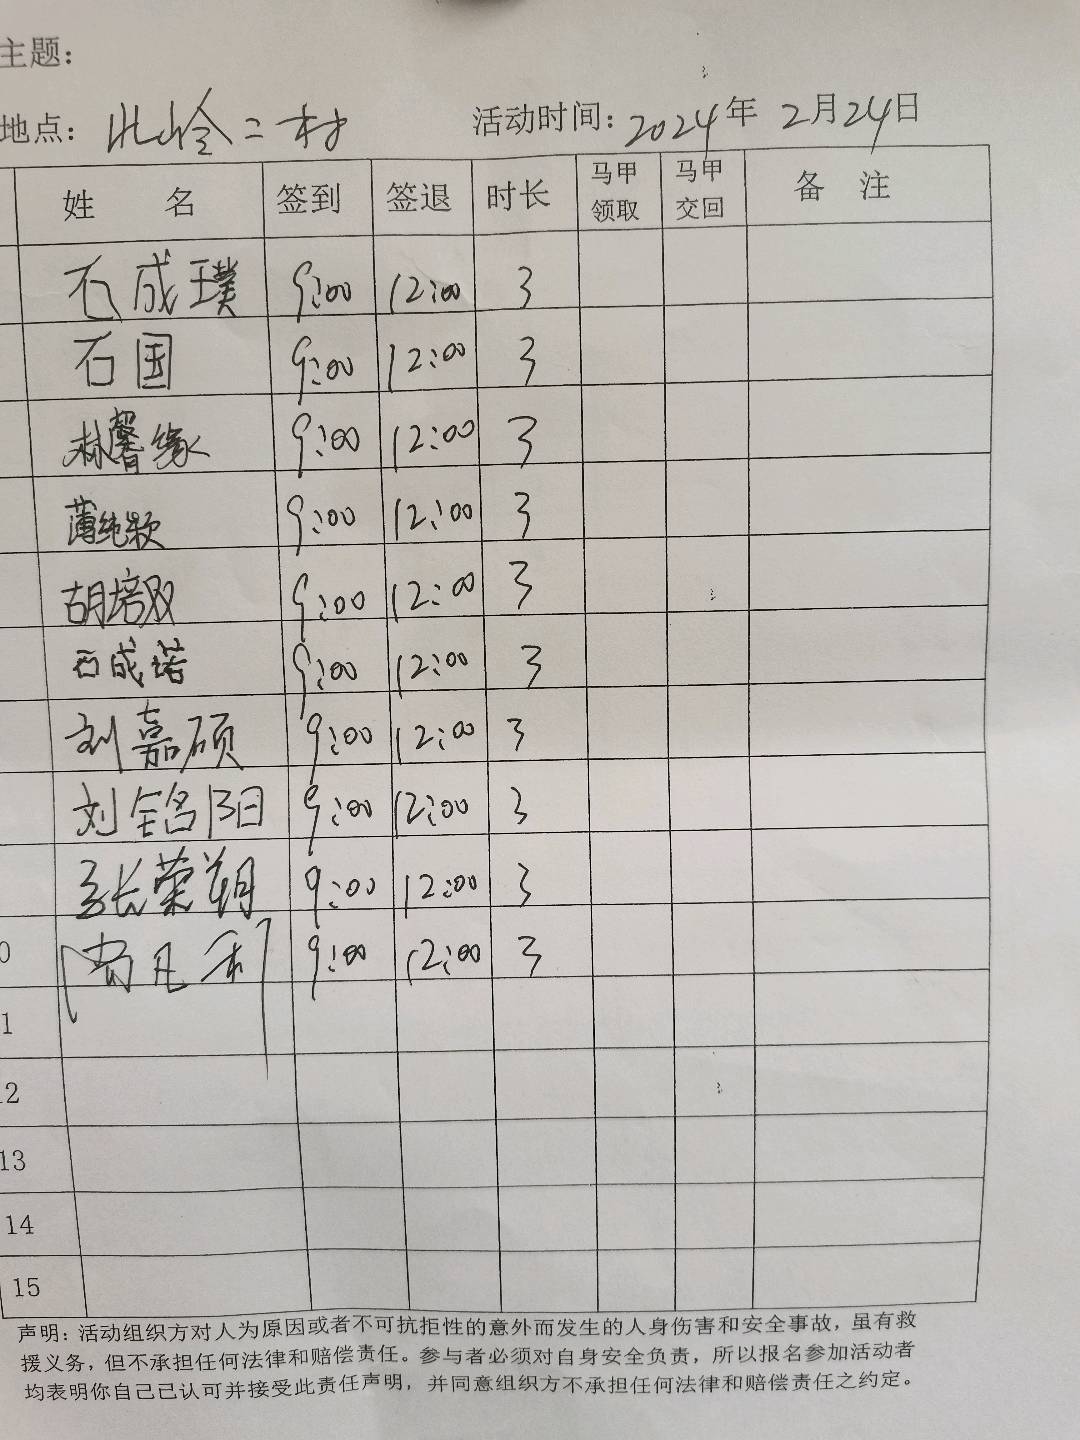 主题：
地点：北岭二村 活动时间：2024年2月24日
姓 名 签到 签退 时长 马甲领取 马甲交回 备 注
石成璞 9:00 12:00 3
石国 9:00 12:00 3
林馨缘 9:00 12:00 3
薄纯颖 9:00 12:00 3
胡培双 9:00 12:00 3
石成诺 9:00 12:00 3
刘嘉硕 9:00 12:00 3
刘铭阳 9:00 12:00 3
张荣朔 9:00 12:00 3
0 9:00 12:00 3
1
12
13
14
15
声明：活动组织方对人为原因或者不可抗拒性的意外而发生的人身伤害和安全事故，虽有救
援义务，但不承担任何法律和赔偿责任。参与者必须对自身安全负责，所以报名参加活动者
均表明你自己已认可并接受此责任声明，并同意组织方不承担任何法律和赔偿责任之约定。